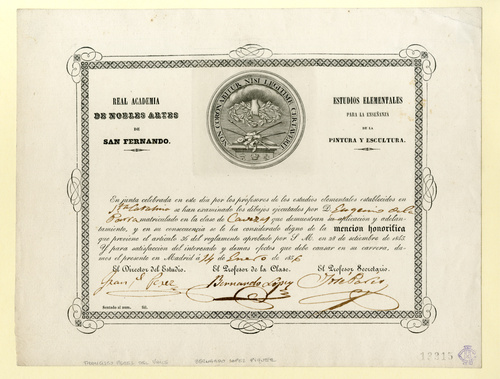 REAL ACADEMIA
DE NOBLES ARTES
DE
SAN FERNANDO.
NON CORONABITUR NISI LEGITIME CERTAVERIT
ESTUDIOS ELEMENTALES
PARA LA ENSEÑANZA
DE LA
PINTURA Y ESCULTURA.
En junta celebrada en este dia por los profesores de los estudios elementales establecidos en
se han examinado los dibujos ejecutados por D. Eugenio de la
matriculado en la clase de Cabezas que demuestran su aplicacion y adelan-
tamiento, y en su consecuencia se le ha considerado digno de la mencion honorifica
que previene el articulo 36 del reglamento aprobado por S. M. en 28 de setiembre de 1845.
Y para satisfaccion del interesado y demas efectos que debe causar en su carrera, da-
mos el presente en Madrid á 24 de Enero de 1856
El Director del Estudio. El Profesor de la Clase. El Profesor Secretario.
Bernardo López
Sentado al num. fol.
FRANCISCO PEREZ DEL VALLE
BERNARDO LOPEZ PIQUER